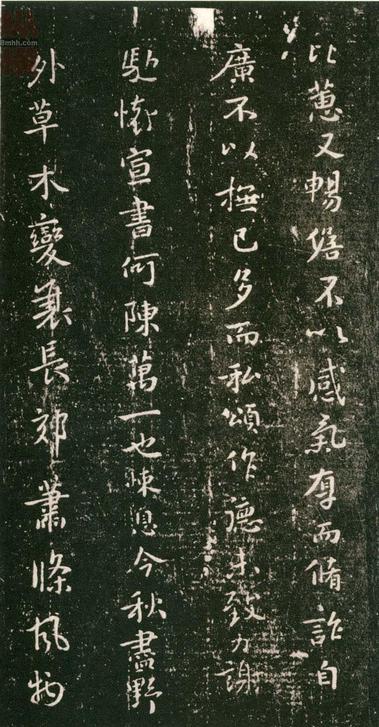 比蕙又暢不以感氣厚而脩詐自
廣不以撫已多而私頌作德未致力謝
懷宣書何陳萬一也悚息今秋盡野
外草木變衰長郊蕭條風物
8mhh.com